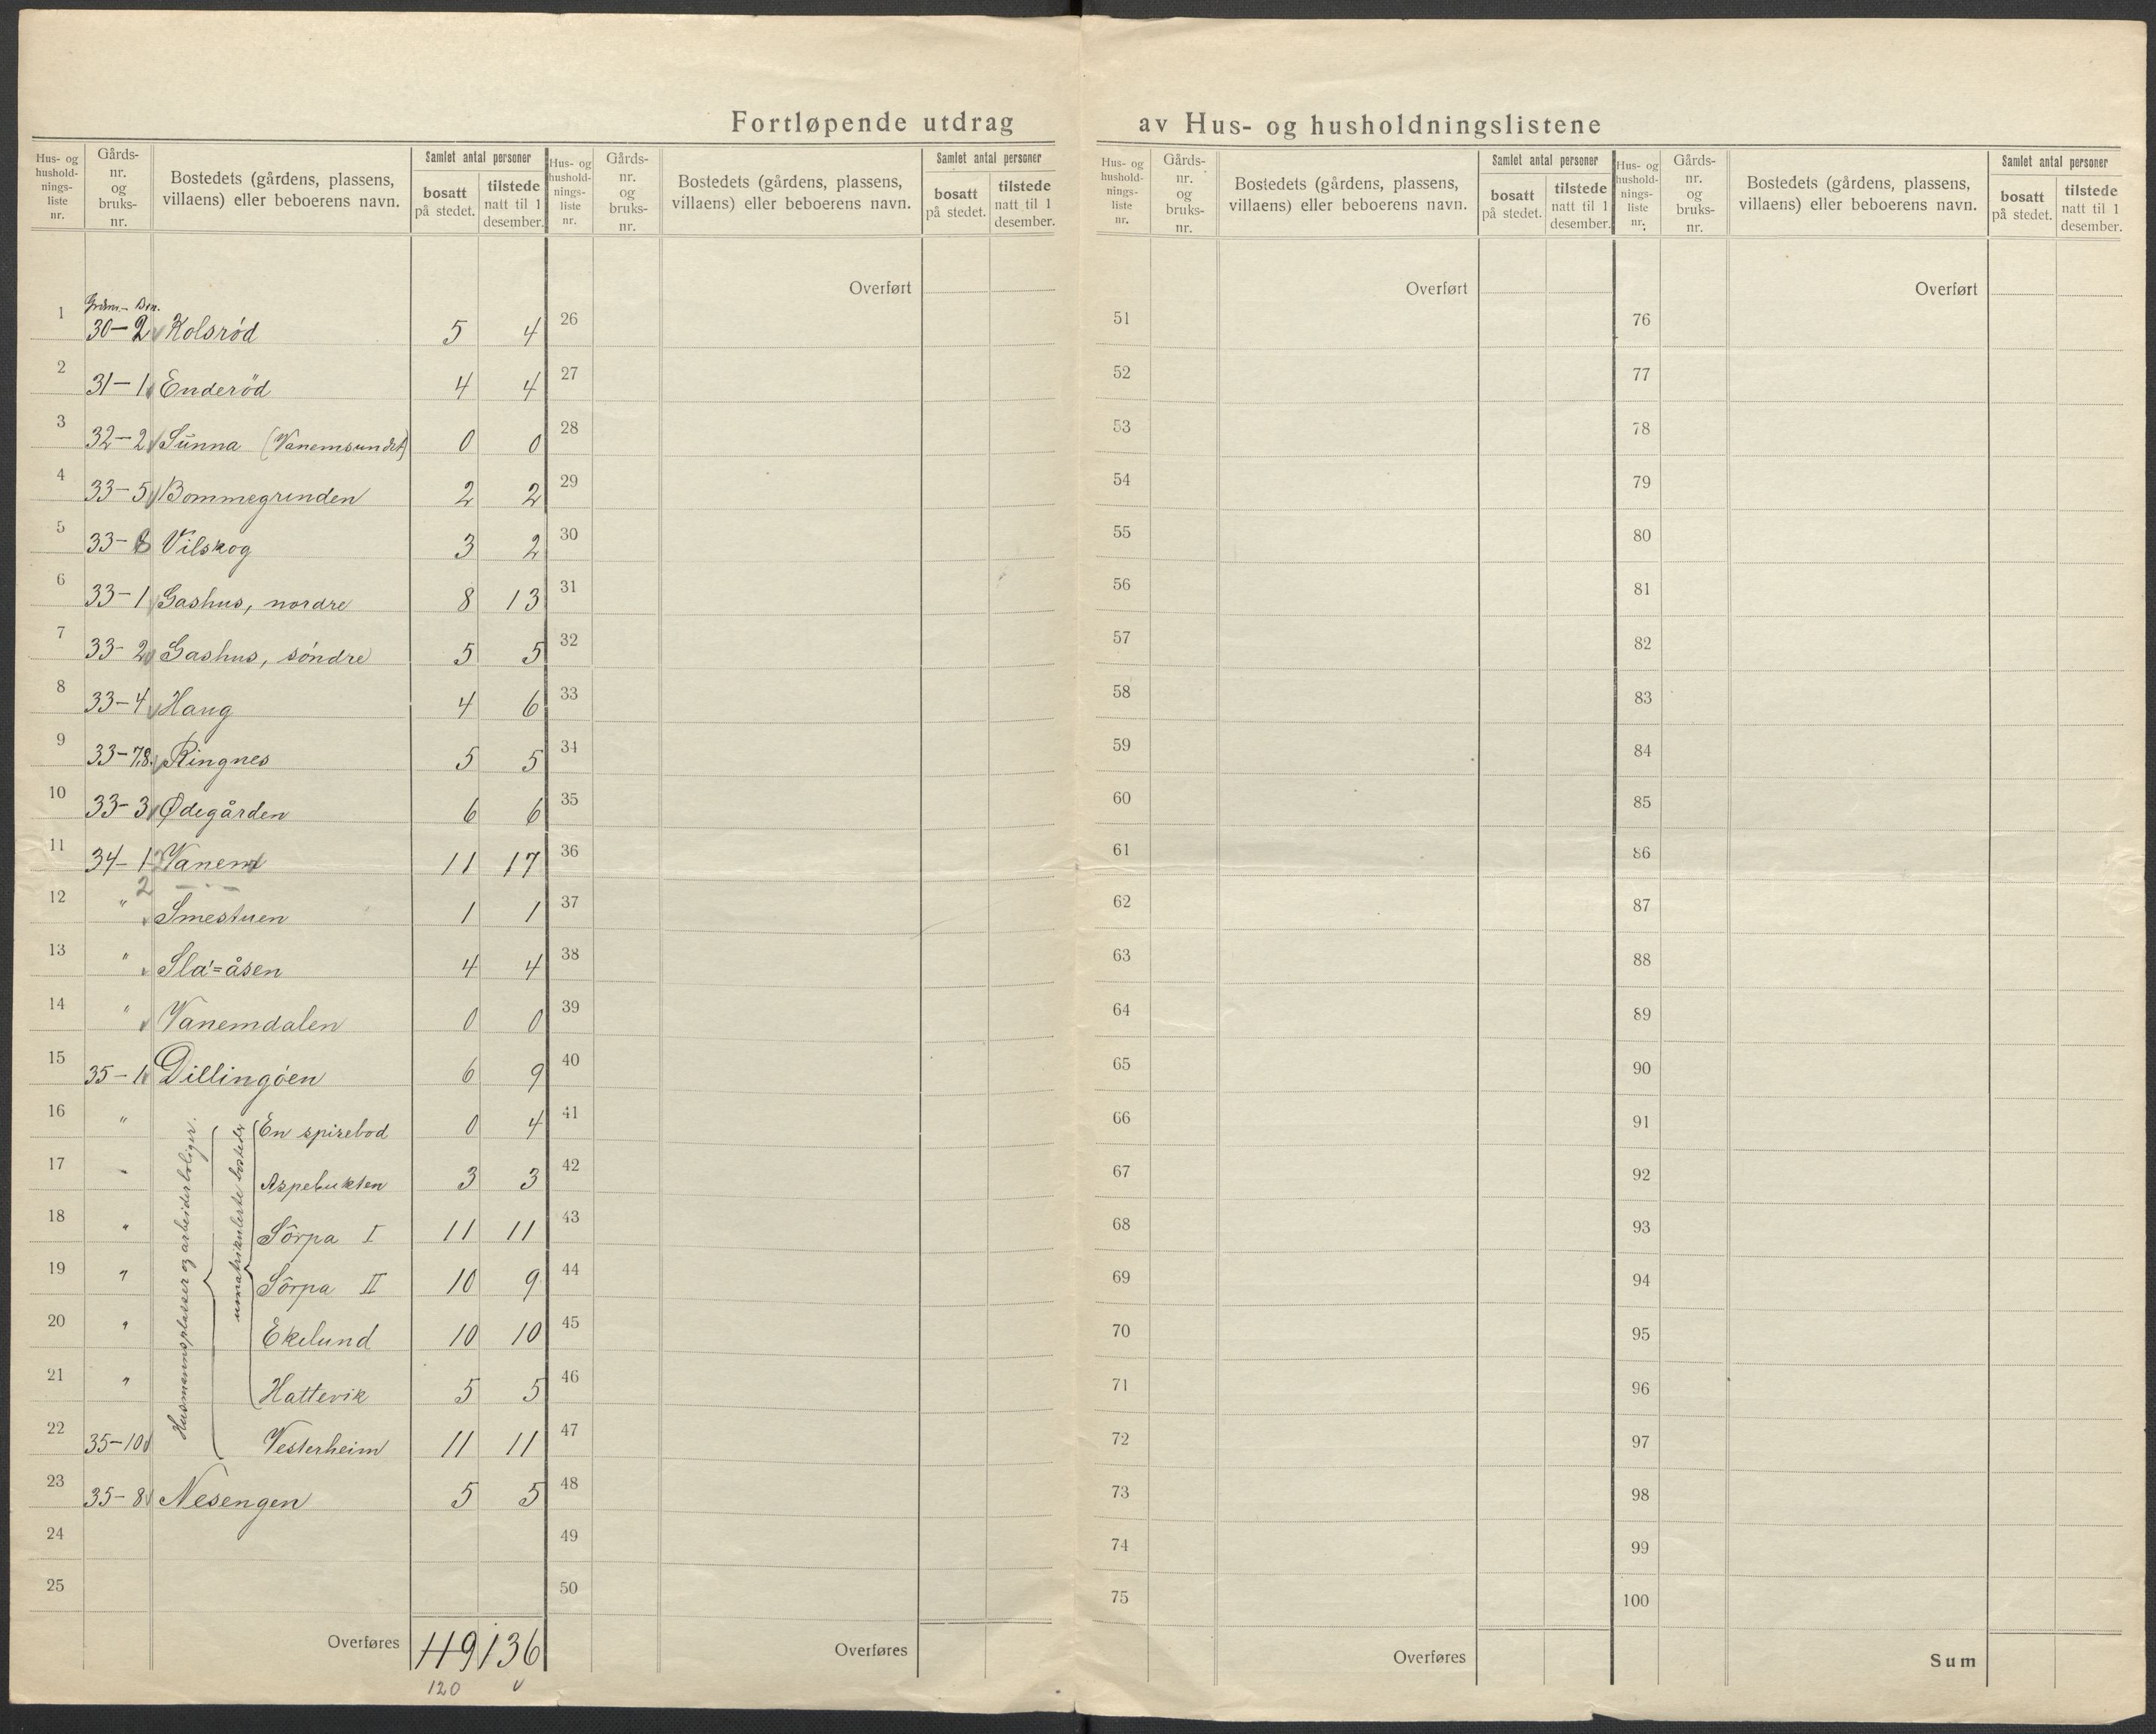 Fortløpende utdrag av Hus- og husholdningslistene
Hus- og hushold- nings- liste nr.
Gårds- nr. og bruks- nr.
Bostedets (gårdens, plassens, villaens) eller beboerens navn.
Samlet antal personer
bosatt på stedet.
tilstede natt til 1 desember.
Hus- og hushold- nings- liste nr.
Gårds- nr. og bruks- nr.
Bostedets (gårdens, plassens, villaens) eller beboerens navn.
Samlet antal personer
bosatt på stedet.
tilstede natt til 1 desember.
Hus- og hushold- nings- liste nr.
Gårds- nr. og bruks- nr.
Bostedets (gårdens, plassens, villaens) eller beboerens navn.
Samlet antal personer
bosatt på stedet.
tilstede natt til 1 desember.
Hus- og hushold- nings- liste nr.
Gårds- nr. og bruks- nr.
Bostedets (gårdens, plassens, villaens) eller beboerens navn.
Samlet antal personer
bosatt på stedet.
tilstede natt til 1 desember.
1 30-2 Kolsrød 5 4
2 31-1 Enderöd 4 4
3 32-2 Sunna (Vanemsundet) 0 0
4 33-5 Bommegrinden 2 2
5 33- Vilskog 3 2
6 33-1 Gashus, nordre 8 13
7 33-2 Gashus, söndre 5 5
8 33-4 Haug 4 6
9 33-7,8. Ringnes 5 5
10 33-3 Ødegården 6 6
11 34-1 Vanem 11 17
2
12 " Smestuen 1 1
13 " Sla'=åsen 4 4
14 " Vanemdalen 0 0
15 35-1 Dillingöen 6 9
Husmannsplasser og arbeiderboliger.
umatrikulerte bosteder
16 " En spisebod 0 4
17 " Aspebukten 3 3
18 " Sörpa I 11 11
19 " Sörpa II 10 9
20 " Ekelund 10 10
21 " Hattevik 5 5
22 35-10 Vesterheim 11 11
23 35-8 Nesengen 5 5
24
25
Overføres 119 136
120
Overført
26
27
28
29
30
31
32
33
34
35
36
37
38
39
40
41
42
43
44
45
46
47
48
49
50
Overføres
Overført
51
52
53
54
55
56
57
58
59
60
61
62
63
64
65
66
67
68
69
70
71
72
73
74
75
Overføres
Overført
76
77
78
79
80
81
82
83
84
85
86
87
88
89
90
91
92
93
94
95
96
97
98
99
100
Sum